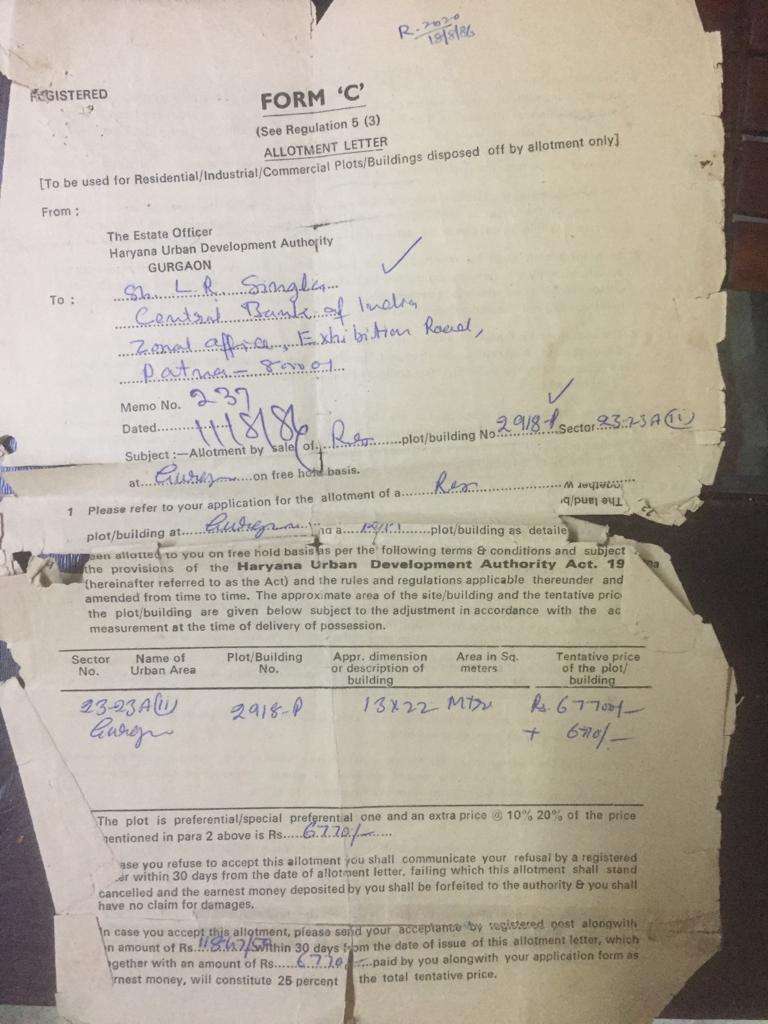 R-2020
18/8/86
REGISTERED
FORM 'C'
(See Regulation 5 (3)
ALLOTMENT LETTER
[To be used for Residential/Industrial/Commercial Plots/Buildings disposed off by allotment only]
From :
The Estate Officer
Haryana Urban Development Authority
GURGAON
To : Sh. L.R. Singla
Central Bank of India
Zonal office, Exhibition Road,
Patna -
Memo No. 237
Dated 11/8/86
Subject :—Allotment by sale of Res plot/building No 2918-P Sector 23-23A(ii)
at Gurgaon on free hold basis.
1 Please refer to your application for the allotment of a Res
The land/b
plot/building at Gurgaon plot/building as detaile
een allotted to you on free hold basis as per the following terms & conditions and subject
the provisions of the Haryana Urban Development Authority Act. 19
(hereinafter referred to as the Act) and the rules and regulations applicable thereunder and
amended from time to time. The approximate area of the site/building and the tentative pric
the plot/building are given below subject to the adjustment in accordance with the ac
measurement at the time of delivery of possession.
Sector No. Name of Urban Area Plot/Building No. Appr. dimension or description of building Area in Sq. meters Tentative price of the plot/ building
23-23A(ii) 2918-P 13x22 Mtr Rs. 67700/-
Gurgaon + 6770/-
The plot is preferential/special preferential one and an extra price @ 10% 20% of the price
mentioned in para 2 above is Rs.....6770/-.....
ase you refuse to accept this allotment you shall communicate your refusal by a registered
er within 30 days from the date of allotment letter, failing which this allotment shall stand
cancelled and the earnest money deposited by you shall be forfeited to the authority & you shall
have no claim for damages.
In case you accept this allotment, please send your acceptance by registered post alongwith
n amount of Rs. within 30 days from the date of issue of this allotment letter, which
ogether with an amount of Rs. 6770/- paid by you alongwith your application form as
rnest money, will constitute 25 percent the total tentative price.